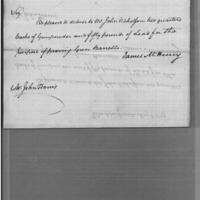 Sir
Be pleased to deliver to Mr John Nicholson two quarter
Casks of Gunpowder and fifty pounds of Lead for the
purpose of proving Gun Barrells
James McHenry
Mr John Harris